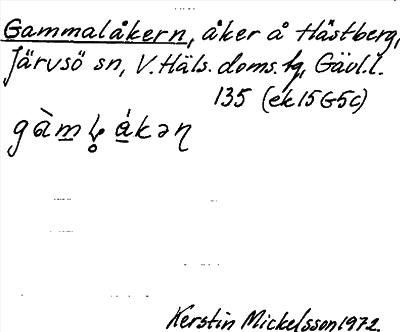 Gammalåkern, åker å Hästberg,
Järvsö sn, V. Häls. doms. hg, Gävl.l.
135 (ek15G5c)
gàmḷákən
Kerstin Mickelsson 1972.